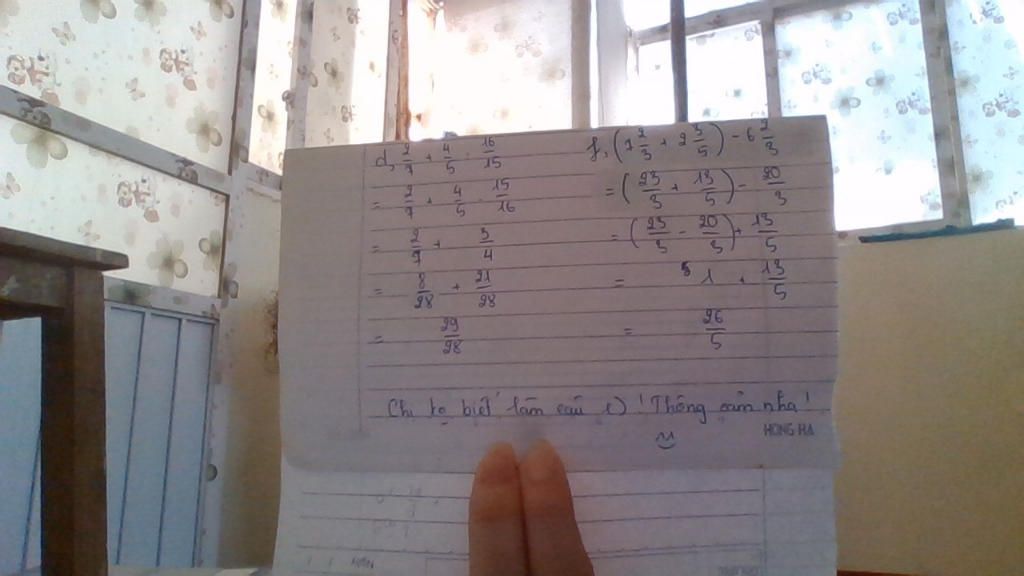 d, 2/7 + 4/5 : 16/15
= 2/7 + 4/5 . 15/16
= 2/7 + 3/4
= 8/28 + 21/28
= 29/28
f, (7 2/3 + 2 3/5) - 6 2/3
= (23/3 + 13/5) - 20/3
= (23/3 - 20/3) + 13/5
= 1 + 13/5
= 26/5
Chị ko biết làm câu e) ! Thông cảm nha !
HONG HA